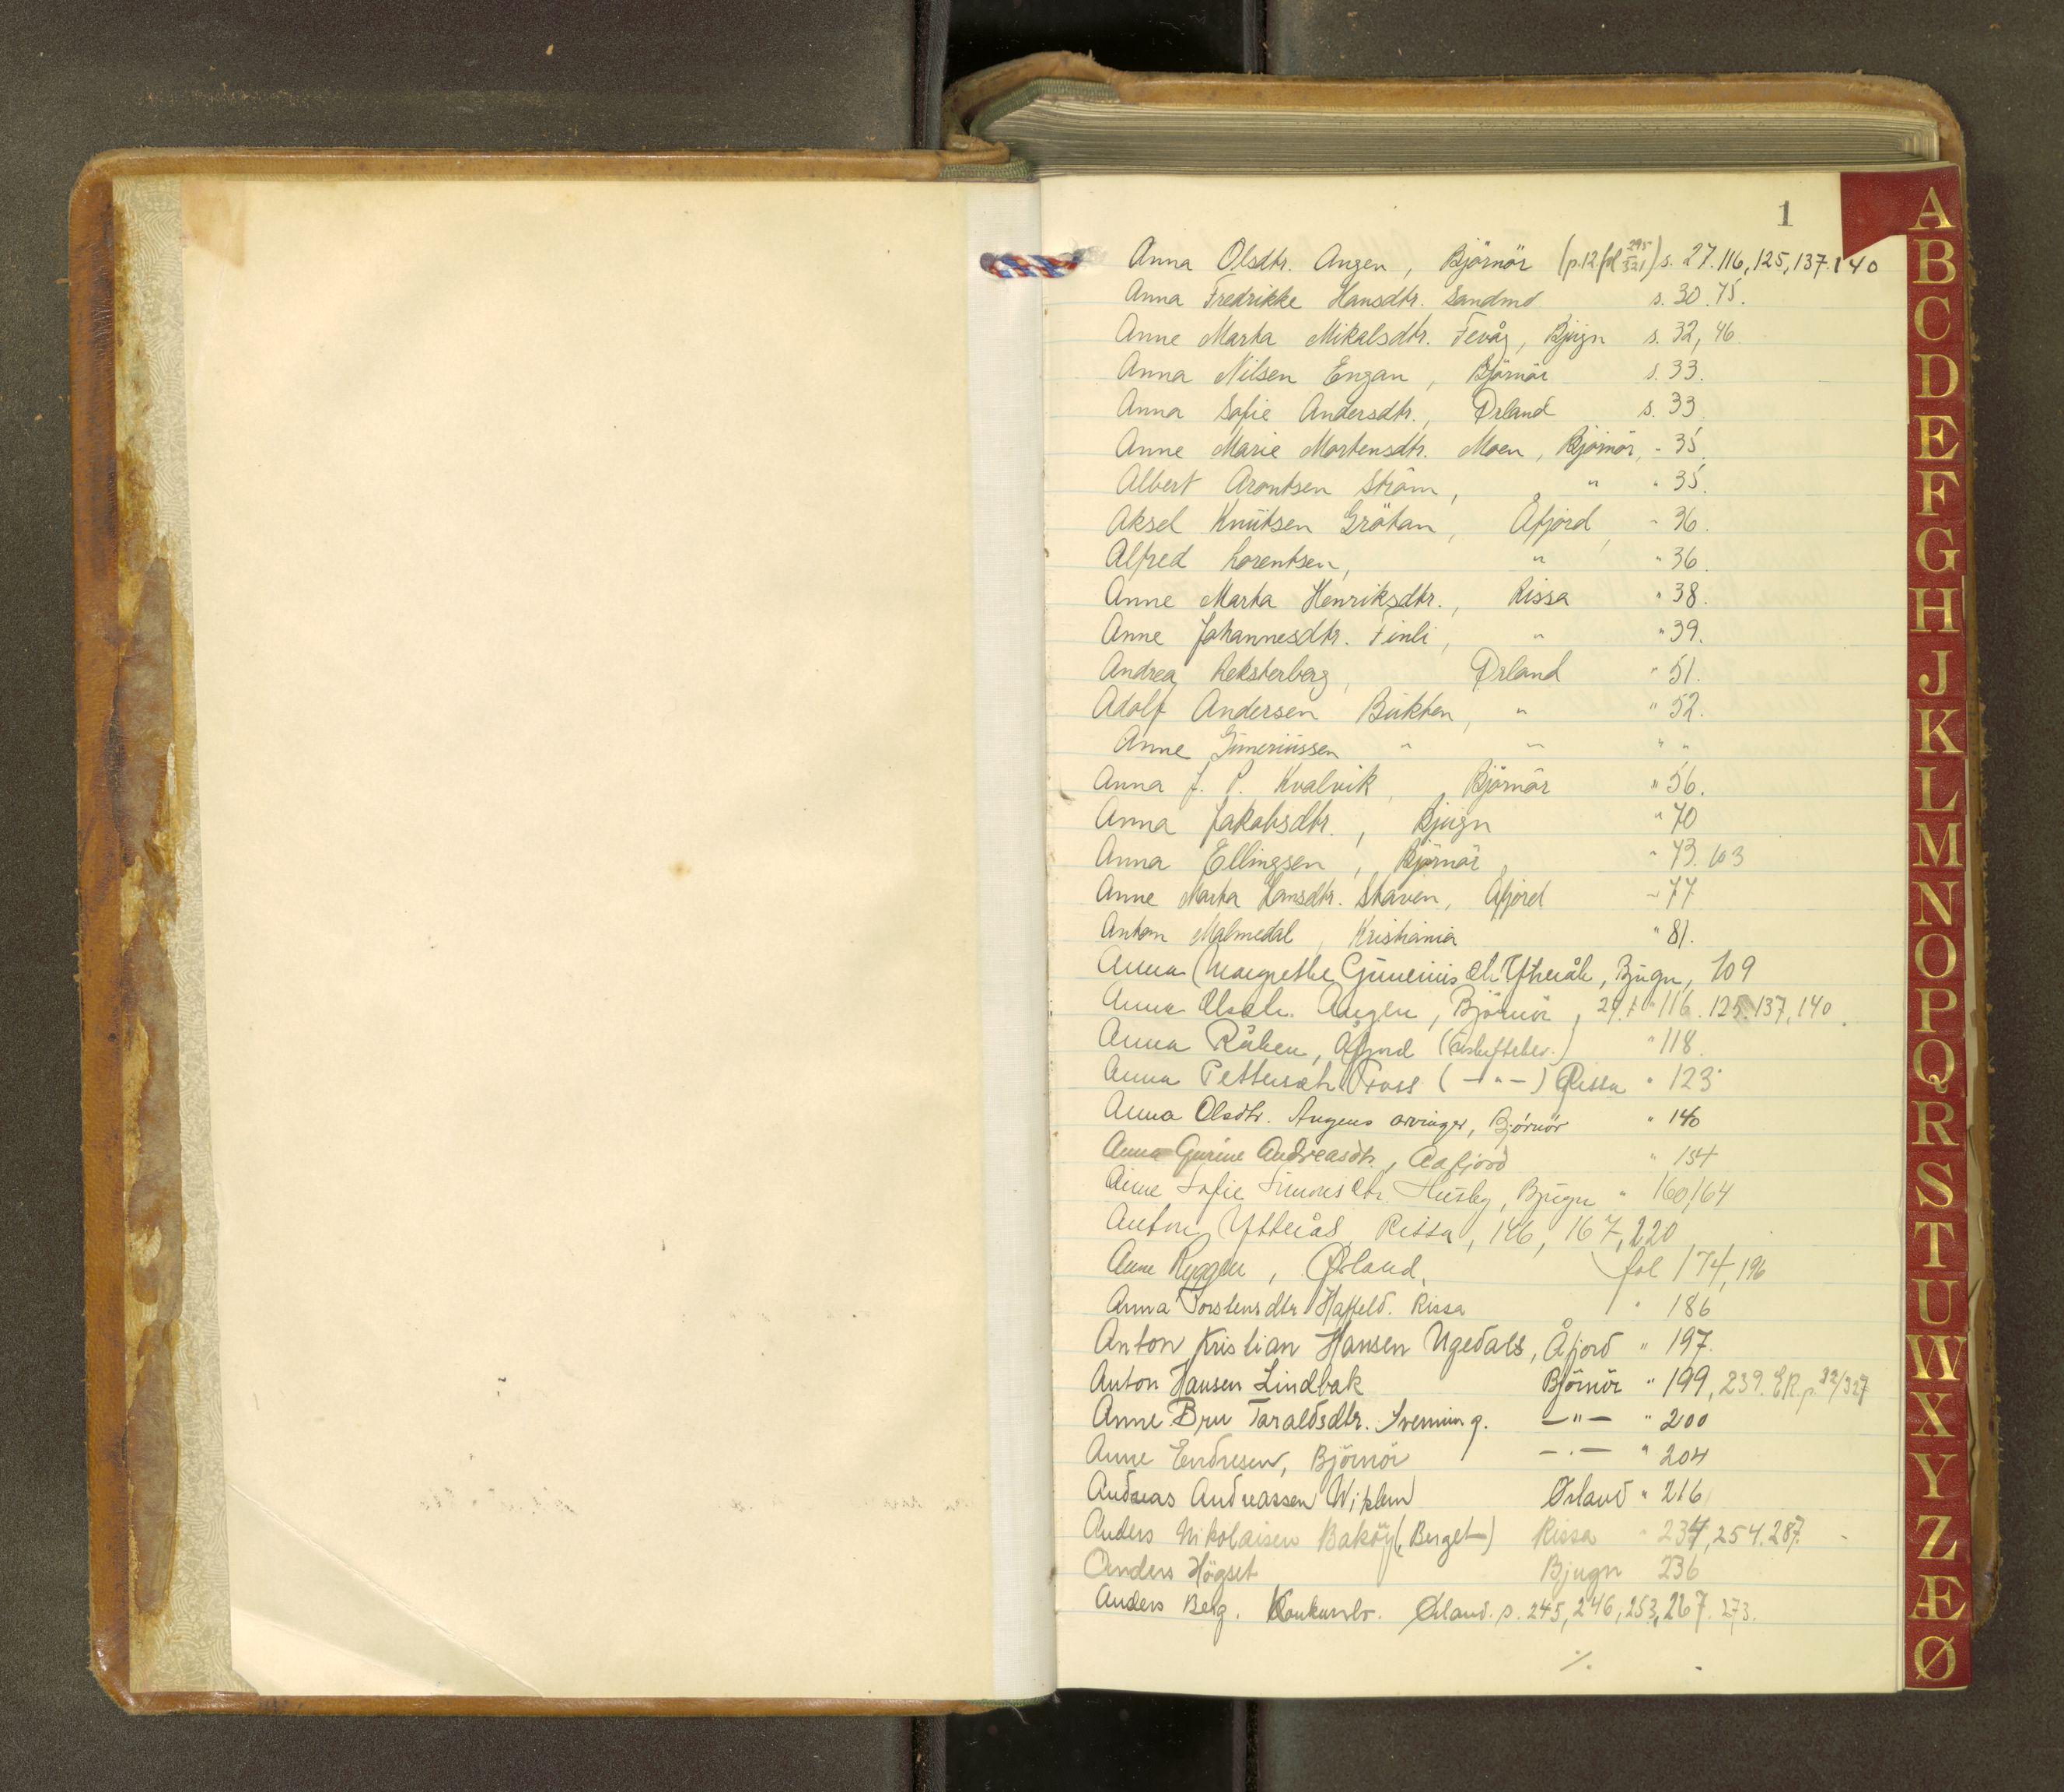 1
Anna Olsdtr. Angen, Björnör (p.12 fol 295/321) s. 27.116,125,137.140
Anna Fredrikke Hansdtr. Sandmo s. 30.75.
Anne Marta Mikalsdtr. Fevåg, Bjugn s. 32, 46
Anna Nilsen Engan, Björnör s. 33.
Anna Sofie Andersdtr., Ørland s. 33
Anne Marie Mortensdtr. Moen, Björnör, " 35.
Albert Arontsen Ström, " " 35.
Aksel Knutsen Grötan, Åfjord, " 36.
Alfred Lorentsen, " " 36.
Anne Marta Henriksdtr., Rissa " 38.
Anne Johannesdtr. Finli, " " 39.
Andrea Reksterberg, Ørland " 51.
Adolf Andersen Bukten, " " 52.
Anne Guneriussen " " " "
Anna J. P. Kvalvik, Björnör " 56.
Anna Jakobsdtr., Bjugn " 70
Anna Ellingsen, Björnör " 73. 103
Anne Marta Hansdtr. Skaven, Åfjord " 77
Anton Malmedal, Kristiania " 81.
Anna Margrethe Gunerius dtr. Ytteraas, Bjugn, 109
Anna Olsdtr. Angen, Björnör, 27. " 116. 125. 137, 140.
Anna Råken, Åfjord " 118.
Anna Pettersdtr. Fross ( — " — ) Rissa " 123
Anna Olsdtr. Angens arvinger, Björnör " 140
Anna Gurine Andreasdtr., Aafjord " 154
Anne Sofie Simonsdtr. Husby, Bjugn " 160,164
Anton Ytteraas, Rissa, 146, 167, 220
Anne Ryggen, Ørland, fol 174, 196
Anna Torstensdtr Haffeld. Rissa " 186
Anton Kristian Hansen Ugedals, Åfjord " 197.
Anton Hansen Lindbak Björnör " 199, 239. ER. p 32/327
Anne Bru Taraldsdtr. Svenning. — " — " 200
Anne Endresen, Björnör — " — " 204
Andreas Andreassen Viklem Ørland " 216
Anders Nikolaisen Baköy (Berget) Rissa " 234, 254. 287.
Anders Högset Bjugn 236
Anders Berg. Konkursbo. Ørland. s. 245, 246, 253, 267. 273.
A
B
C
D
E
F
G
H
J
K
L
M
N
O
P
Q
R
S
T
U
W
X
Y
Z
Æ
Ø